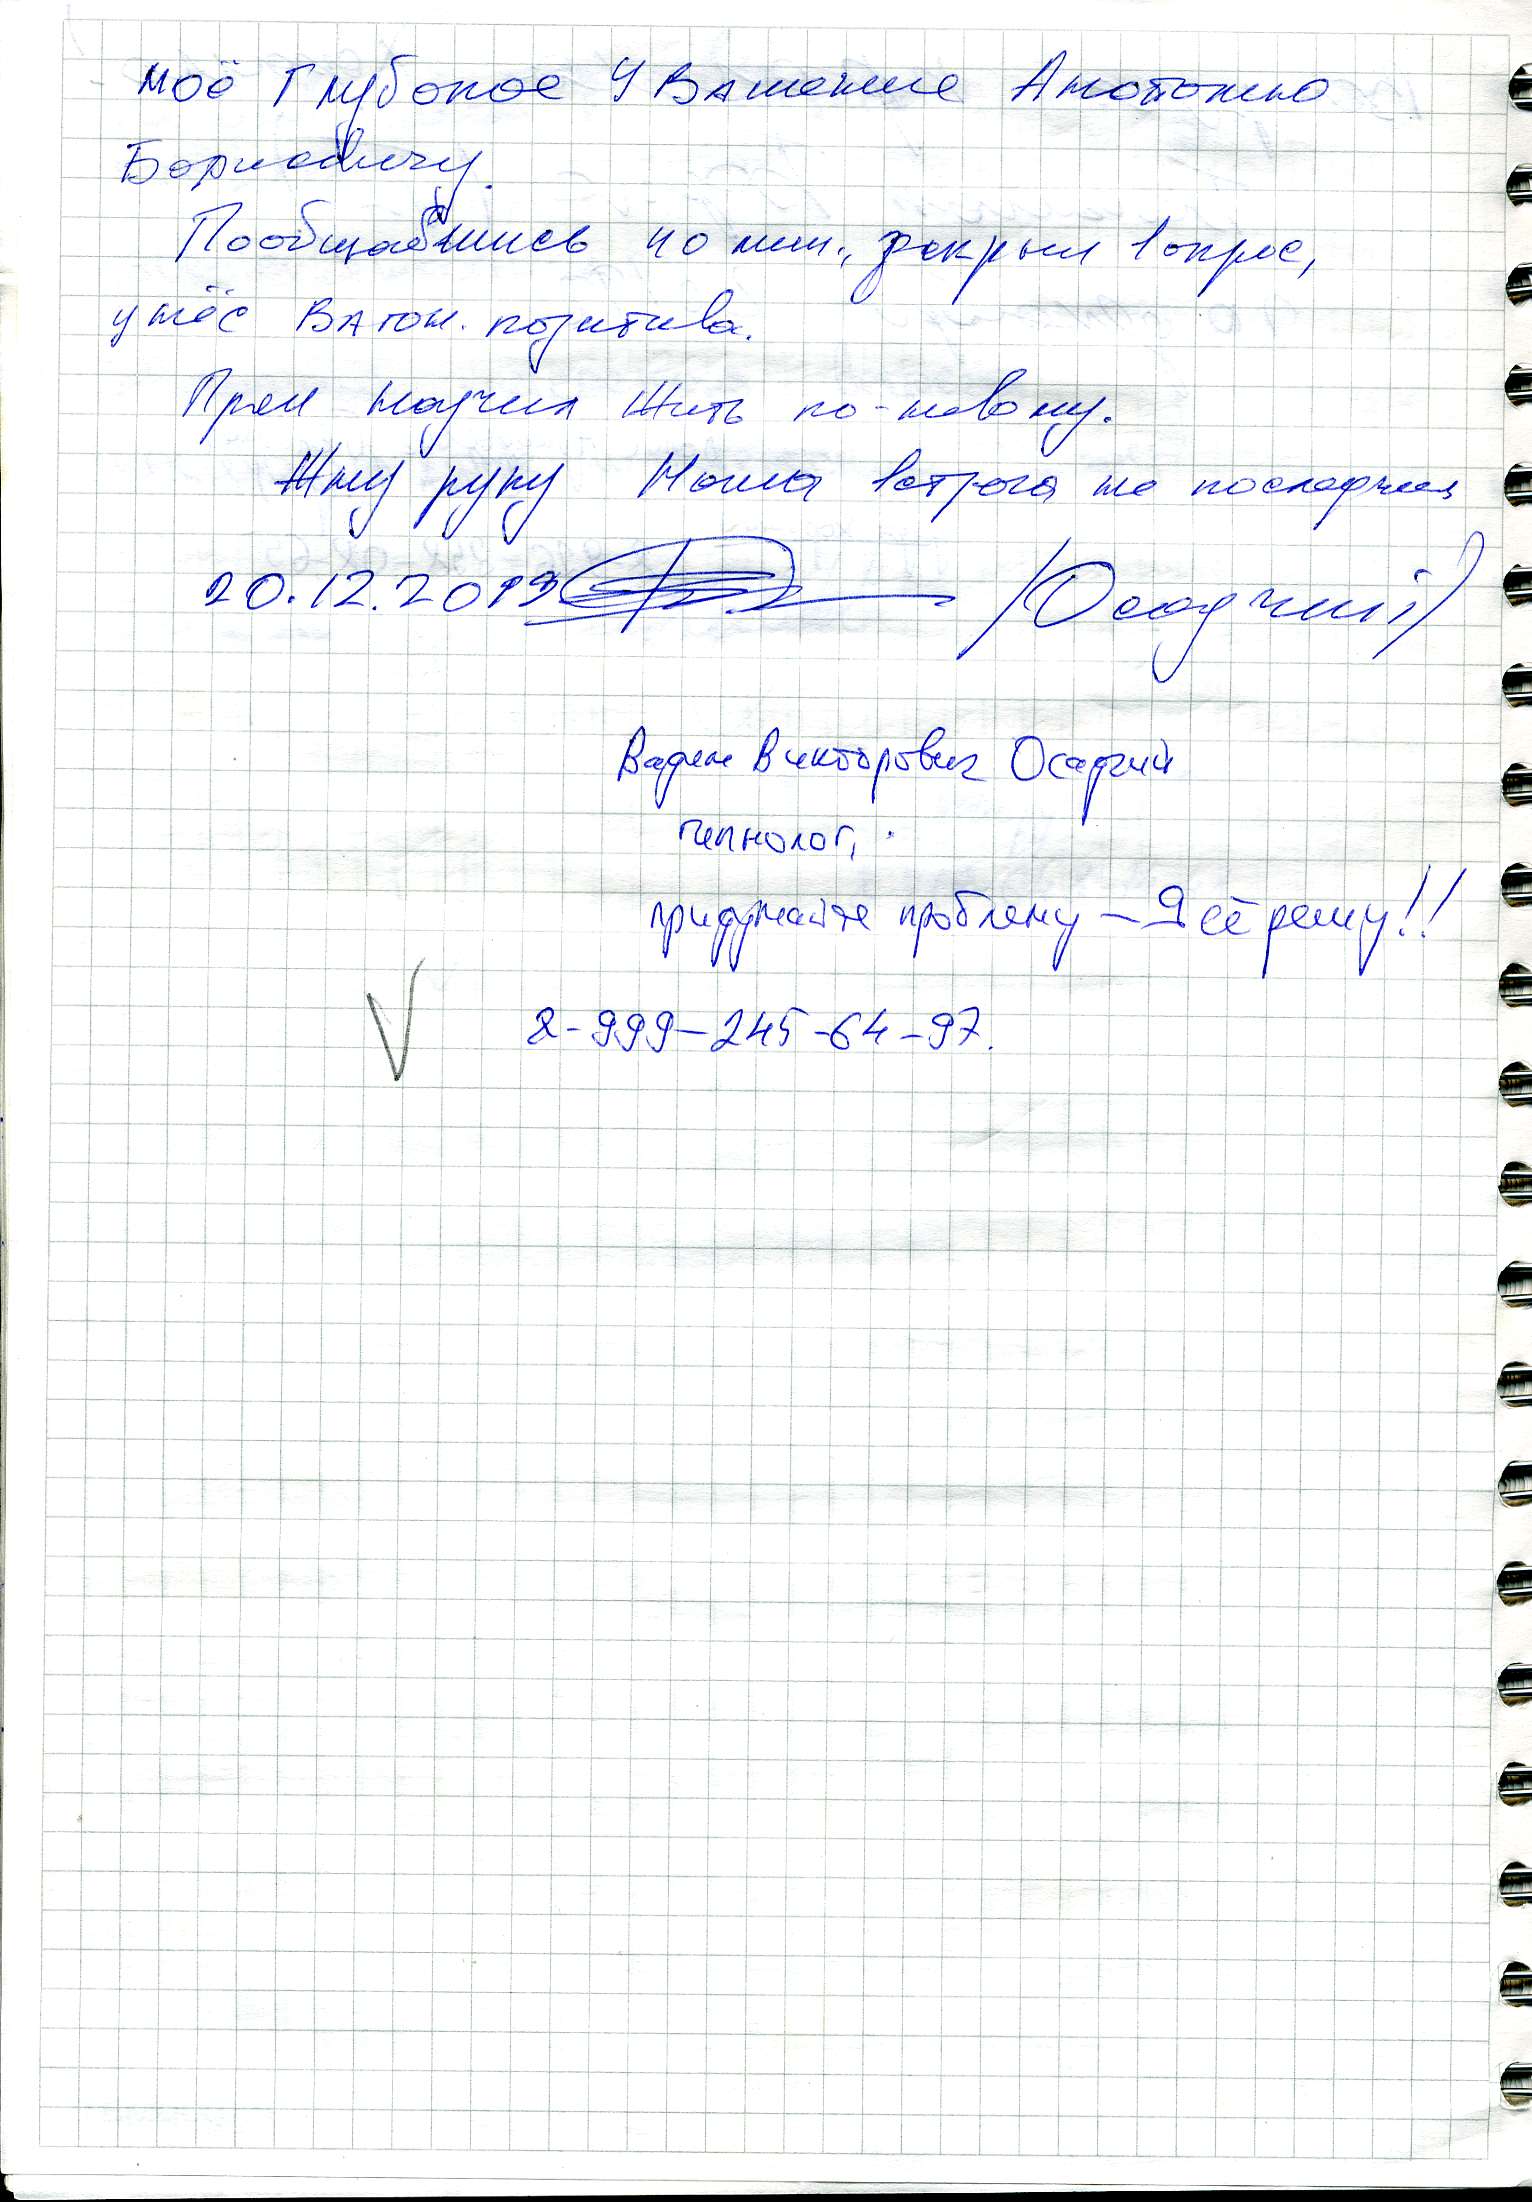 моё Глубокое Уважение Анатолию
Борисовичу.
Пообщавшись 40 мин., закрыл вопрос,
унёс вагон позитива.
Прям научил жить по-новому.
Жму руку Наша встреча не последняя
20.12.2019 /Осадчий/
Вадим Викторович Осадчий
технолог,
придумайте проблему — Я её решу!!
8-999-245-64-97.